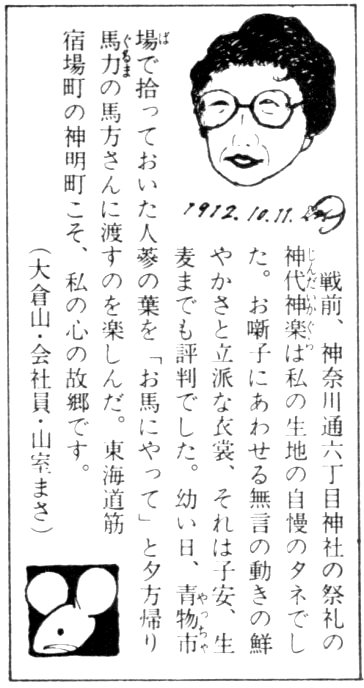 1912.10.11.
戦前、神奈川通六丁目神社の祭礼の
神代神楽は私の生地の自慢のタネでし
た。お囃子にあわせる無言の動きの鮮
やかさと立派な衣裳、それは子安、生
麦までも評判でした。幼い日、青物市
場で拾っておいた人蔘の葉を「お馬にやって」と夕方帰り
馬力の馬方さんに渡すのを楽しんだ。東海道筋
宿場町の神明町こそ、私の心の故郷です。
（大倉山・会社員・山室まさ）